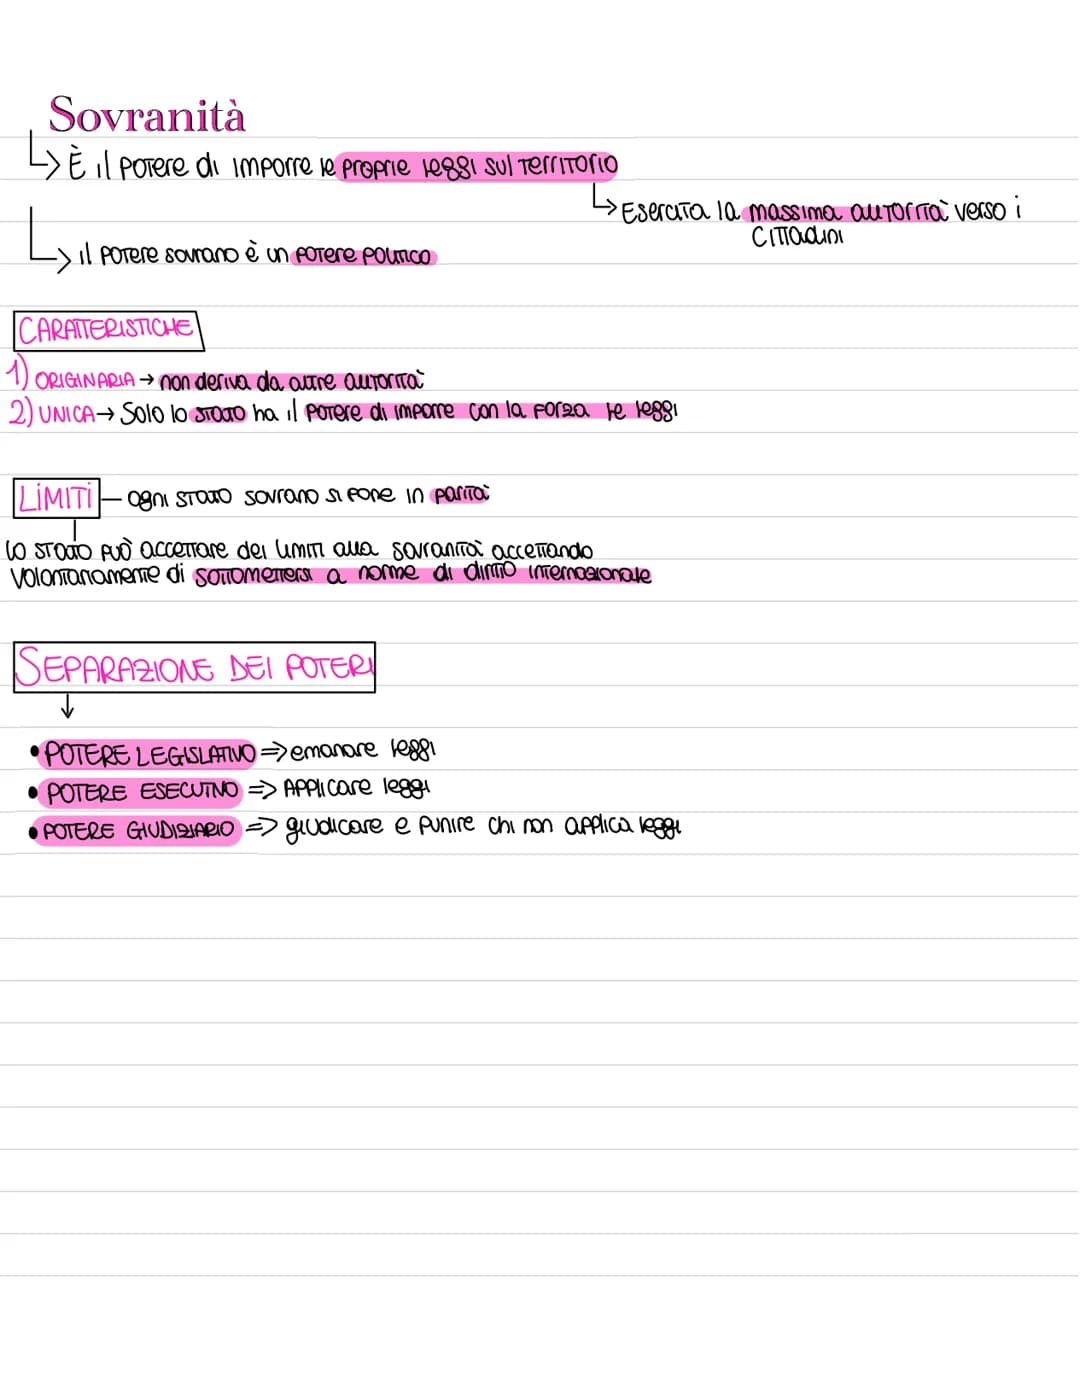 Sovranità
↳ È il potere di imporre le proprie leggi sul territorio
↳ Esercita la massima autorità verso i
cittadini
↳ il potere sovrano è un potere politico
CARATTERISTICHE
1) ORIGINARIA → non deriva da altre autorità
2) UNICA → Solo lo stato ha il potere di imporre con la forza le leggi
LIMITI — ogni stato sovrano si pone in parità
lo stato può accettare dei limiti alla sovranità accettando
volontariamente di sottomettersi a norme di diritto internazionale
SEPARAZIONE DEI POTERI
↓
• POTERE LEGISLATIVO => emanare leggi
• POTERE ESECUTIVO => APPlicare leggi
• POTERE GIUDIZIARIO => giudicare e punire chi non applica leggi